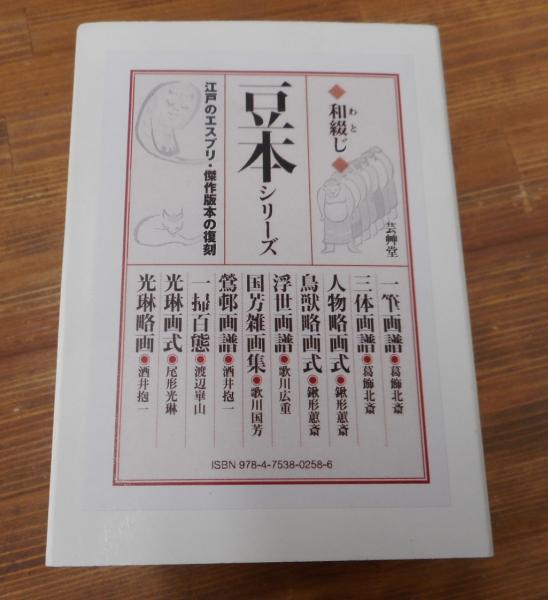 和綴じ
わと
芸艸堂
豆本シリーズ
江戸のエスプリ・傑作版本の復刻
一筆画譜●葛飾北斎
三体画譜●葛飾北斎
人物略画式●鍬形蕙斎
鳥獣略画式●鍬形蕙斎
浮世画譜●歌川広重
国芳雑画集●歌川国芳
鶯邨画譜●酒井抱一
一掃百態●渡辺崋山
光琳画式●尾形光琳
光琳略画●酒井抱一
ISBN 978-4-7538-0258-6